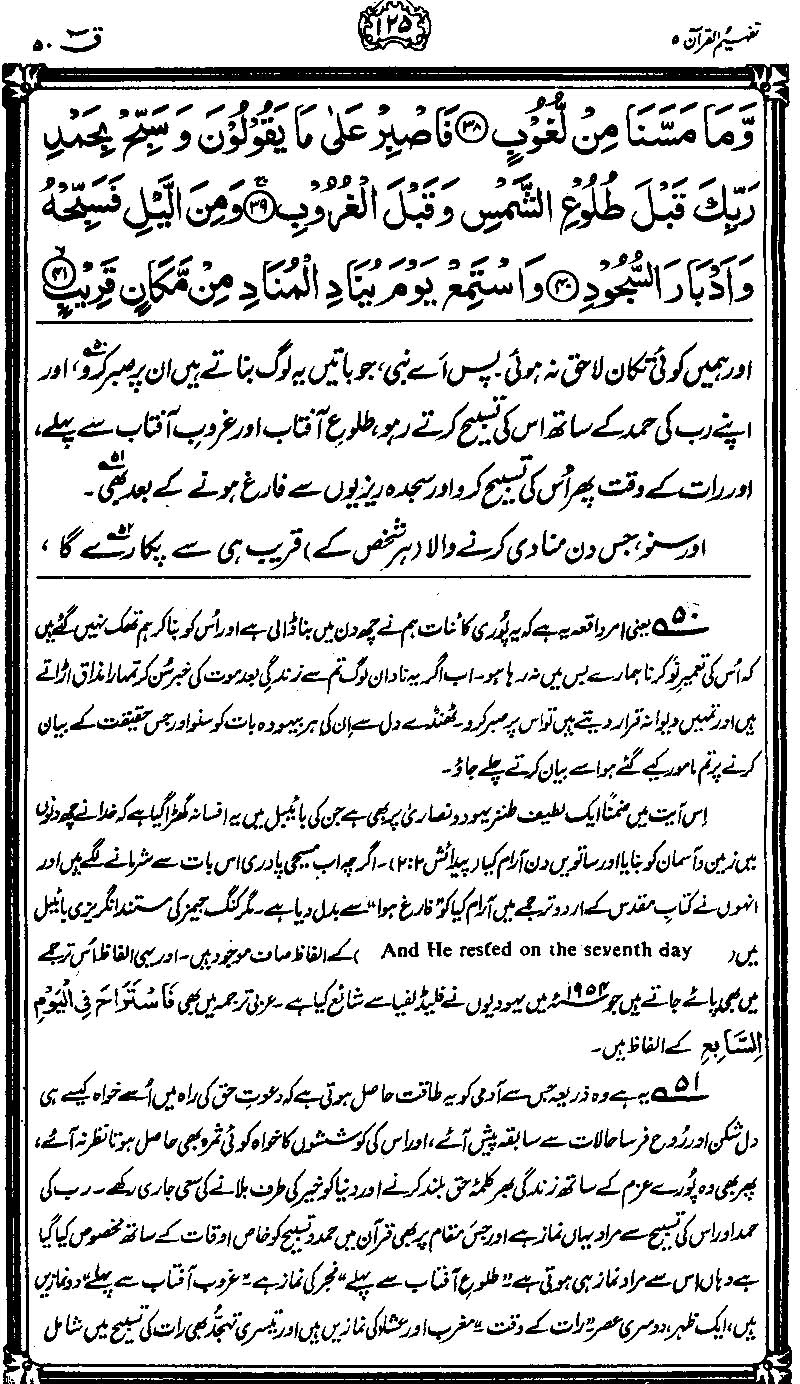 تفہیم القرآن ۵
۱۲۵
قٓ ۵۰
وَّمَا مَسَّنَا مِنْ لُّغُوْبٍ ﴿۳۸﴾ فَاصْبِرْ عَلٰى مَا يَقُوْلُوْنَ وَسَبِّحْ بِحَمْدِ
رَبِّكَ قَبْلَ طُلُوْعِ الشَّمْسِ وَقَبْلَ الْغُرُوْبِ ﴿۳۹﴾ وَمِنَ الَّيْلِ فَسَبِّحْهُ
وَاَدْبَارَ السُّجُوْدِ ﴿۴۰﴾ وَاسْتَمِعْ يَوْمَ يُنَادِ الْمُنَادِ مِنْ مَّكَانٍ قَرِيْبٍ ﴿۴۱﴾
اور ہمیں کوئی تکان لاحق نہ ہوئی۔ پس اَے نبی، جو باتیں یہ لوگ بناتے ہیں ان پر صبر کرو۵۰، اور
اپنے رب کی حمد کے ساتھ اس کی تسبیح کرتے رہو، طلوعِ آفتاب اور غروبِ آفتاب سے پہلے،
اور رات کے وقت پھر اُس کی تسبیح کرو اور سجدہ ریزیوں سے فارغ ہونے کے بعد بھی۵۱۔
اور سنو، جس دن منادی کرنے والا (ہر شخص کے) قریب ہی سے پکارے گا۵۲،
۵۰ یعنی امر واقعہ یہ ہے کہ یہ پُوری کائنات ہم نے چھ دن میں بنا ڈالی ہے اور اُس کو بنا کر ہم تھک نہیں گئے ہیں
کہ اُس کی تعمیرِ نَو کرنا ہمارے بس میں نہ رہا ہو۔ اب اگر یہ نادان لوگ تم سے زندگی بعد موت کی خبر سُن کر تمہارا مذاق اڑاتے
ہیں اور تمہیں دیوانہ قرار دیتے ہیں تو اس پر صبر کرو۔ ٹھنڈے دل سے اِن کی ہر بیہودہ بات کو سنو اور جس حقیقت کے بیان
کرنے پر تم مامور کیے گئے ہو اسے بیان کرتے چلے جاؤ۔
اِس آیت میں ضمناً ایک لطیف طنز یہود و نصاریٰ پر بھی ہے جن کی بائیبل میں یہ افسانہ گھڑا گیا ہے کہ خدا نے چھ دنوں
میں زمین و آسمان کو بنایا اور ساتویں دن آرام کیا (پیدائش ۲:۲)۔ اگرچہ اب مسیحی پادری اس بات سے شرمانے لگے ہیں اور
انہوں نے کتابِ مقدس کے اردو ترجمے میں آرام کیا کو ”فارغ ہوا“ سے بدل دیا ہے۔ مگر کنگ جیمز کی مستند انگریزی بائیبل
میں (And He rested on the seventh day) کے الفاظ صاف موجود ہیں۔ اور یہی الفاظ اُس ترجمے
میں بھی پائے جاتے ہیں جو ۱۹۵۴ء میں یہودیوں نے فلیڈلفیا سے شائع کیا ہے۔ عربی ترجمہ میں بھی فَاسْتَرَاحَ فِی الْیَوْمِ
السَّابِعِ کے الفاظ ہیں۔
۵۱ یہ ہے وہ ذریعہ جس سے آدمی کو یہ طاقت حاصل ہوتی ہے کہ دعوتِ حق کی راہ میں اُسے خواہ کیسے ہی
دل شکن اور رُوح فرسا حالات سے سابقہ پیش آئے، اور اس کی کوششوں کا خواہ کوئی ثمرہ بھی حاصل ہوتا نظر نہ آئے،
پھر بھی وہ پورے عزم کے ساتھ زندگی بھر کلمۂ حق بلند کرنے اور دنیا کو خیر کی طرف بلانے کی سعی جاری رکھے۔ رب کی
حمد اور اس کی تسبیح سے مراد یہاں نماز ہے اور جس مقام پر بھی قرآن میں حمد و تسبیح کو خاص اوقات کے ساتھ مخصوص کیا گیا
ہے وہاں اس سے مراد نماز ہی ہوتی ہے۔ ”طلوعِ آفتاب سے پہلے“ فجر کی نماز ہے۔ ”غروبِ آفتاب سے پہلے“ دو نمازیں
ہیں، ایک ظہر، دوسری عصر۔ ”رات کے وقت“ مغرب اور عشاء کی نمازیں ہیں اور تیسری تہجد بھی رات کی تسبیح میں شامل